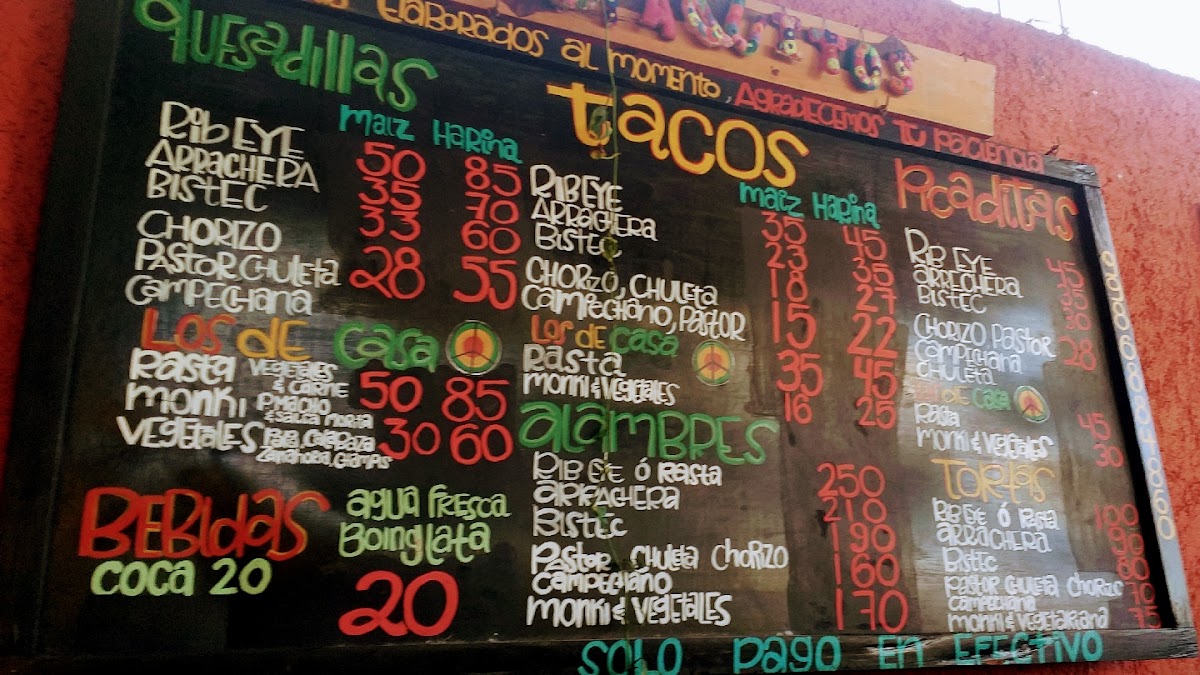 ELABORADOS AL MOMENTO, AGRADECEMOS TU PACIENCIA
QUESADILLAS
MAIZ HARINA
RIB EYE 50 85
ARRACHERA 35 70
BISTEC 33 60
CHORIZO
PASTOR CHULETA 28 55
CAMPECHANA
LOS DE CASA
RASTA VEGETALES & CARNE 50 85
MONKI,
VEGETALES 30 60
BEBIDAS
AGUA FRESCA
BOING LATA
COCA 20
20
TACOS
MAIZ HARINA
RIB EYE 35 45
ARRACHERA 23 35
BISTEC 18 27
CHORZO, CHULETA
CAMPECHANO, PASTOR 15 22
LOS DE CASA
RASTA 35 45
MONKI & VEGETALES 16 25
ALAMBRES
RIB EYE Ó RASTA 250
ARRACHERA 210
BISTEC 190
PASTOR CHULETA CHORIZO 160
CAMPECHANO
MONKI & VEGETALES 170
PICADITAS
RIB EYE 45
ARRECHERA 35
BISTEC 30
CHORIZO PASTOR 28
CAMPECHANA
CHULETA
DE CASA
RASTA 45
MONKI & VEGETALES 30
TORTAS
RIB EYE Ó RASTA 100
ARRACHERA 90
BISTEC 80
PASTOR CHULETA CHORIZO 70
CAMPECHANA
MONKI & VEGETARIANA 75
SOLO PAGO EN EFECTIVO